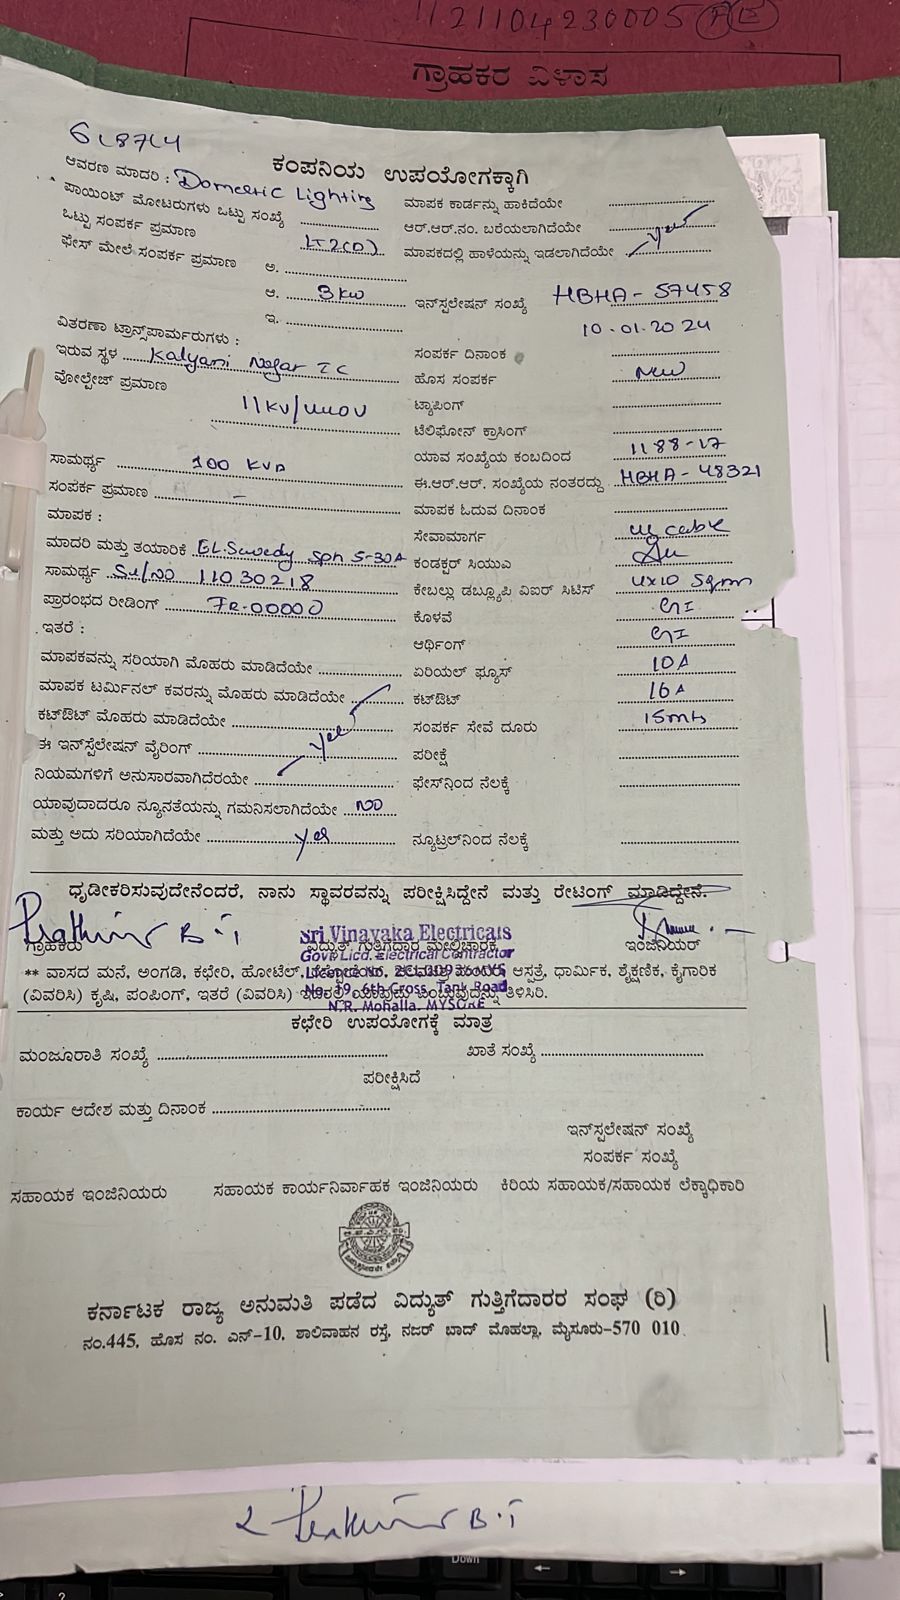 11211042300005 AE
ಗ್ರಾಹಕರ ವಿಳಾಸ
ಕಂಪನಿಯ ಉಪಯೋಗಕ್ಕಾಗಿ
ಆವರಣ ಮಾದರಿ : Domestic Lighting
ಮಾಪಕ ಕಾರ್ಡನ್ನು ಹಾಕಿದೆಯೇ
ಪಾಯಿಂಟ್ ಮೋಟರುಗಳು ಒಟ್ಟು ಸಂಖ್ಯೆ
ಆರ್.ಆರ್.ನಂ. ಬರೆಯಲಾಗಿದೆಯೇ
ಒಟ್ಟು ಸಂಪರ್ಕ ಪ್ರಮಾಣ LT2(D)
ಮಾಪಕದಲ್ಲಿ ಹಾಳೆಯನ್ನು ಇಡಲಾಗಿದೆಯೇ yes
ಫೇಸ್ ಮೇಲೆ ಸಂಪರ್ಕ ಪ್ರಮಾಣ ಅ.
ಆ. 3kw
ಇನ್‌ಸ್ಪಲೇಷನ್ ಸಂಖ್ಯೆ HBHA-57458
ಇ.
10.01.2024
ವಿತರಣಾ ಟ್ರಾನ್ಸ್‌ಫಾರ್ಮರುಗಳು :
ಇರುವ ಸ್ಥಳ Kalyani Nagar TC
ಸಂಪರ್ಕ ದಿನಾಂಕ
ವೋಲ್ಟೇಜ್ ಪ್ರಮಾಣ
ಹೊಸ ಸಂಪರ್ಕ New
11KV/440V
ಟ್ಯಾಪಿಂಗ್
ಟೆಲಿಫೋನ್ ಕ್ರಾಸಿಂಗ್
ಸಾಮರ್ಥ್ಯ 100 KVA
ಯಾವ ಸಂಖ್ಯೆಯ ಕಂಬದಿಂದ 1188-17
ಸಂಪರ್ಕ ಪ್ರಮಾಣ –
ಈ.ಆರ್.ಆರ್. ಸಂಖ್ಯೆಯ ನಂತರದ್ದು HBHA-48321
ಮಾಪಕ :
ಮಾಪಕ ಓದುವ ದಿನಾಂಕ
ಮಾದರಿ ಮತ್ತು ತಯಾರಿಕೆ EL.Sewedy Sph 5-30A
ಸೇವಾಮಾರ್ಗ ug cable
ಸಾಮರ್ಥ್ಯ Sl/No 11030218
ಕಂಡಕ್ಟರ್ ಸಿಯುಎ
ಪ್ರಾರಂಭದ ರೀಡಿಂಗ್ FR-00000
ಕೇಬಲ್ಲು ಡಬ್ಲ್ಯೂಪಿ ವಿಐರ್ ಸಿಟಿಸ್ 4x10 Sqmm
ಇತರೆ :
ಕೊಳವೆ GI
ಆರ್ಥಿಂಗ್ GI
ಮಾಪಕವನ್ನು ಸರಿಯಾಗಿ ಮೊಹರು ಮಾಡಿದೆಯೇ
ಏರಿಯಲ್ ಫ್ಯೂಸ್ 10A
ಮಾಪಕ ಟರ್ಮಿನಲ್ ಕವರನ್ನು ಮೊಹರು ಮಾಡಿದೆಯೇ
ಕಟ್‌ಔಟ್ 16A
ಕಟ್‌ಔಟ್ ಮೊಹರು ಮಾಡಿದೆಯೇ yes
ಸಂಪರ್ಕ ಸೇವೆ ದೂರು 15mts
ಈ ಇನ್‌ಸ್ಟೆಲೇಷನ್ ವೈರಿಂಗ್
ಪರೀಕ್ಷೆ
ನಿಯಮಗಳಿಗೆ ಅನುಸಾರವಾಗಿದೆರಯೇ
ಫೇಸ್‌ನಿಂದ ನೆಲಕ್ಕೆ
ಯಾವುದಾದರೂ ನ್ಯೂನತೆಯನ್ನು ಗಮನಿಸಲಾಗಿದೆಯೇ No
ಮತ್ತು ಅದು ಸರಿಯಾಗಿದೆಯೇ yes
ನ್ಯೂಟ್ರಲ್‌ನಿಂದ ನೆಲಕ್ಕೆ
ಧೃಡೀಕರಿಸುವುದೇನೆಂದರೆ, ನಾನು ಸ್ಥಾವರವನ್ನು ಪರೀಕ್ಷಿಸಿದ್ದೇನೆ ಮತ್ತು ರೇಟಿಂಗ್ ಮಾಡಿದ್ದೇನೆ.
Sri Vinayaka Electricals
ಗ್ರಾಹಕರು ವಿದ್ಯುತ್ ಗುತ್ತಿಗೆದಾರ ಮೇಲ್ವಿಚಾರಕ ಇಂಜಿನಿಯರ್
Govt Licd. Electrical Contractor
** ವಾಸದ ಮನೆ, ಅಂಗಡಿ, ಕಛೇರಿ, ಹೋಟೆಲ್, ಆಸ್ಪತ್ರೆ, ಧಾರ್ಮಿಕ, ಶೈಕ್ಷಣಿಕ, ಕೈಗಾರಿಕ
No. 19, 6th Cross, Tank Road
(ವಿವರಿಸಿ) ಕೃಷಿ, ಪಂಪಿಂಗ್, ಇತರೆ (ವಿವರಿಸಿ) ಇದರಲ್ಲಿ ಯಾವುದು ಎಂಬುವುದನ್ನು ತಿಳಿಸಿರಿ.
N.R. Mohalla, MYSORE
ಕಛೇರಿ ಉಪಯೋಗಕ್ಕೆ ಮಾತ್ರ
ಮಂಜೂರಾತಿ ಸಂಖ್ಯೆ
ಖಾತೆ ಸಂಖ್ಯೆ
ಪರೀಕ್ಷಿಸಿದೆ
ಕಾರ್ಯ ಆದೇಶ ಮತ್ತು ದಿನಾಂಕ
ಇನ್‌ಸ್ಪಲೇಷನ್ ಸಂಖ್ಯೆ
ಸಂಪರ್ಕ ಸಂಖ್ಯೆ
ಸಹಾಯಕ ಇಂಜಿನಿಯರು ಸಹಾಯಕ ಕಾರ್ಯನಿರ್ವಾಹಕ ಇಂಜಿನಿಯರು ಕಿರಿಯ ಸಹಾಯಕ/ಸಹಾಯಕ ಲೆಕ್ಕಾಧಿಕಾರಿ
ಕರ್ನಾಟಕ ರಾಜ್ಯ ಅನುಮತಿ ಪಡೆದ ವಿದ್ಯುತ್ ಗುತ್ತಿಗೆದಾರರ ಸಂಘ (ರಿ)
ನಂ.445, ಹೊಸ ನಂ. ಎನ್-10, ಶಾಲಿವಾಹನ ರಸ್ತೆ, ನಜರ್ ಬಾದ್ ಮೊಹಲ್ಲಾ, ಮೈಸೂರು-570 010.
Down